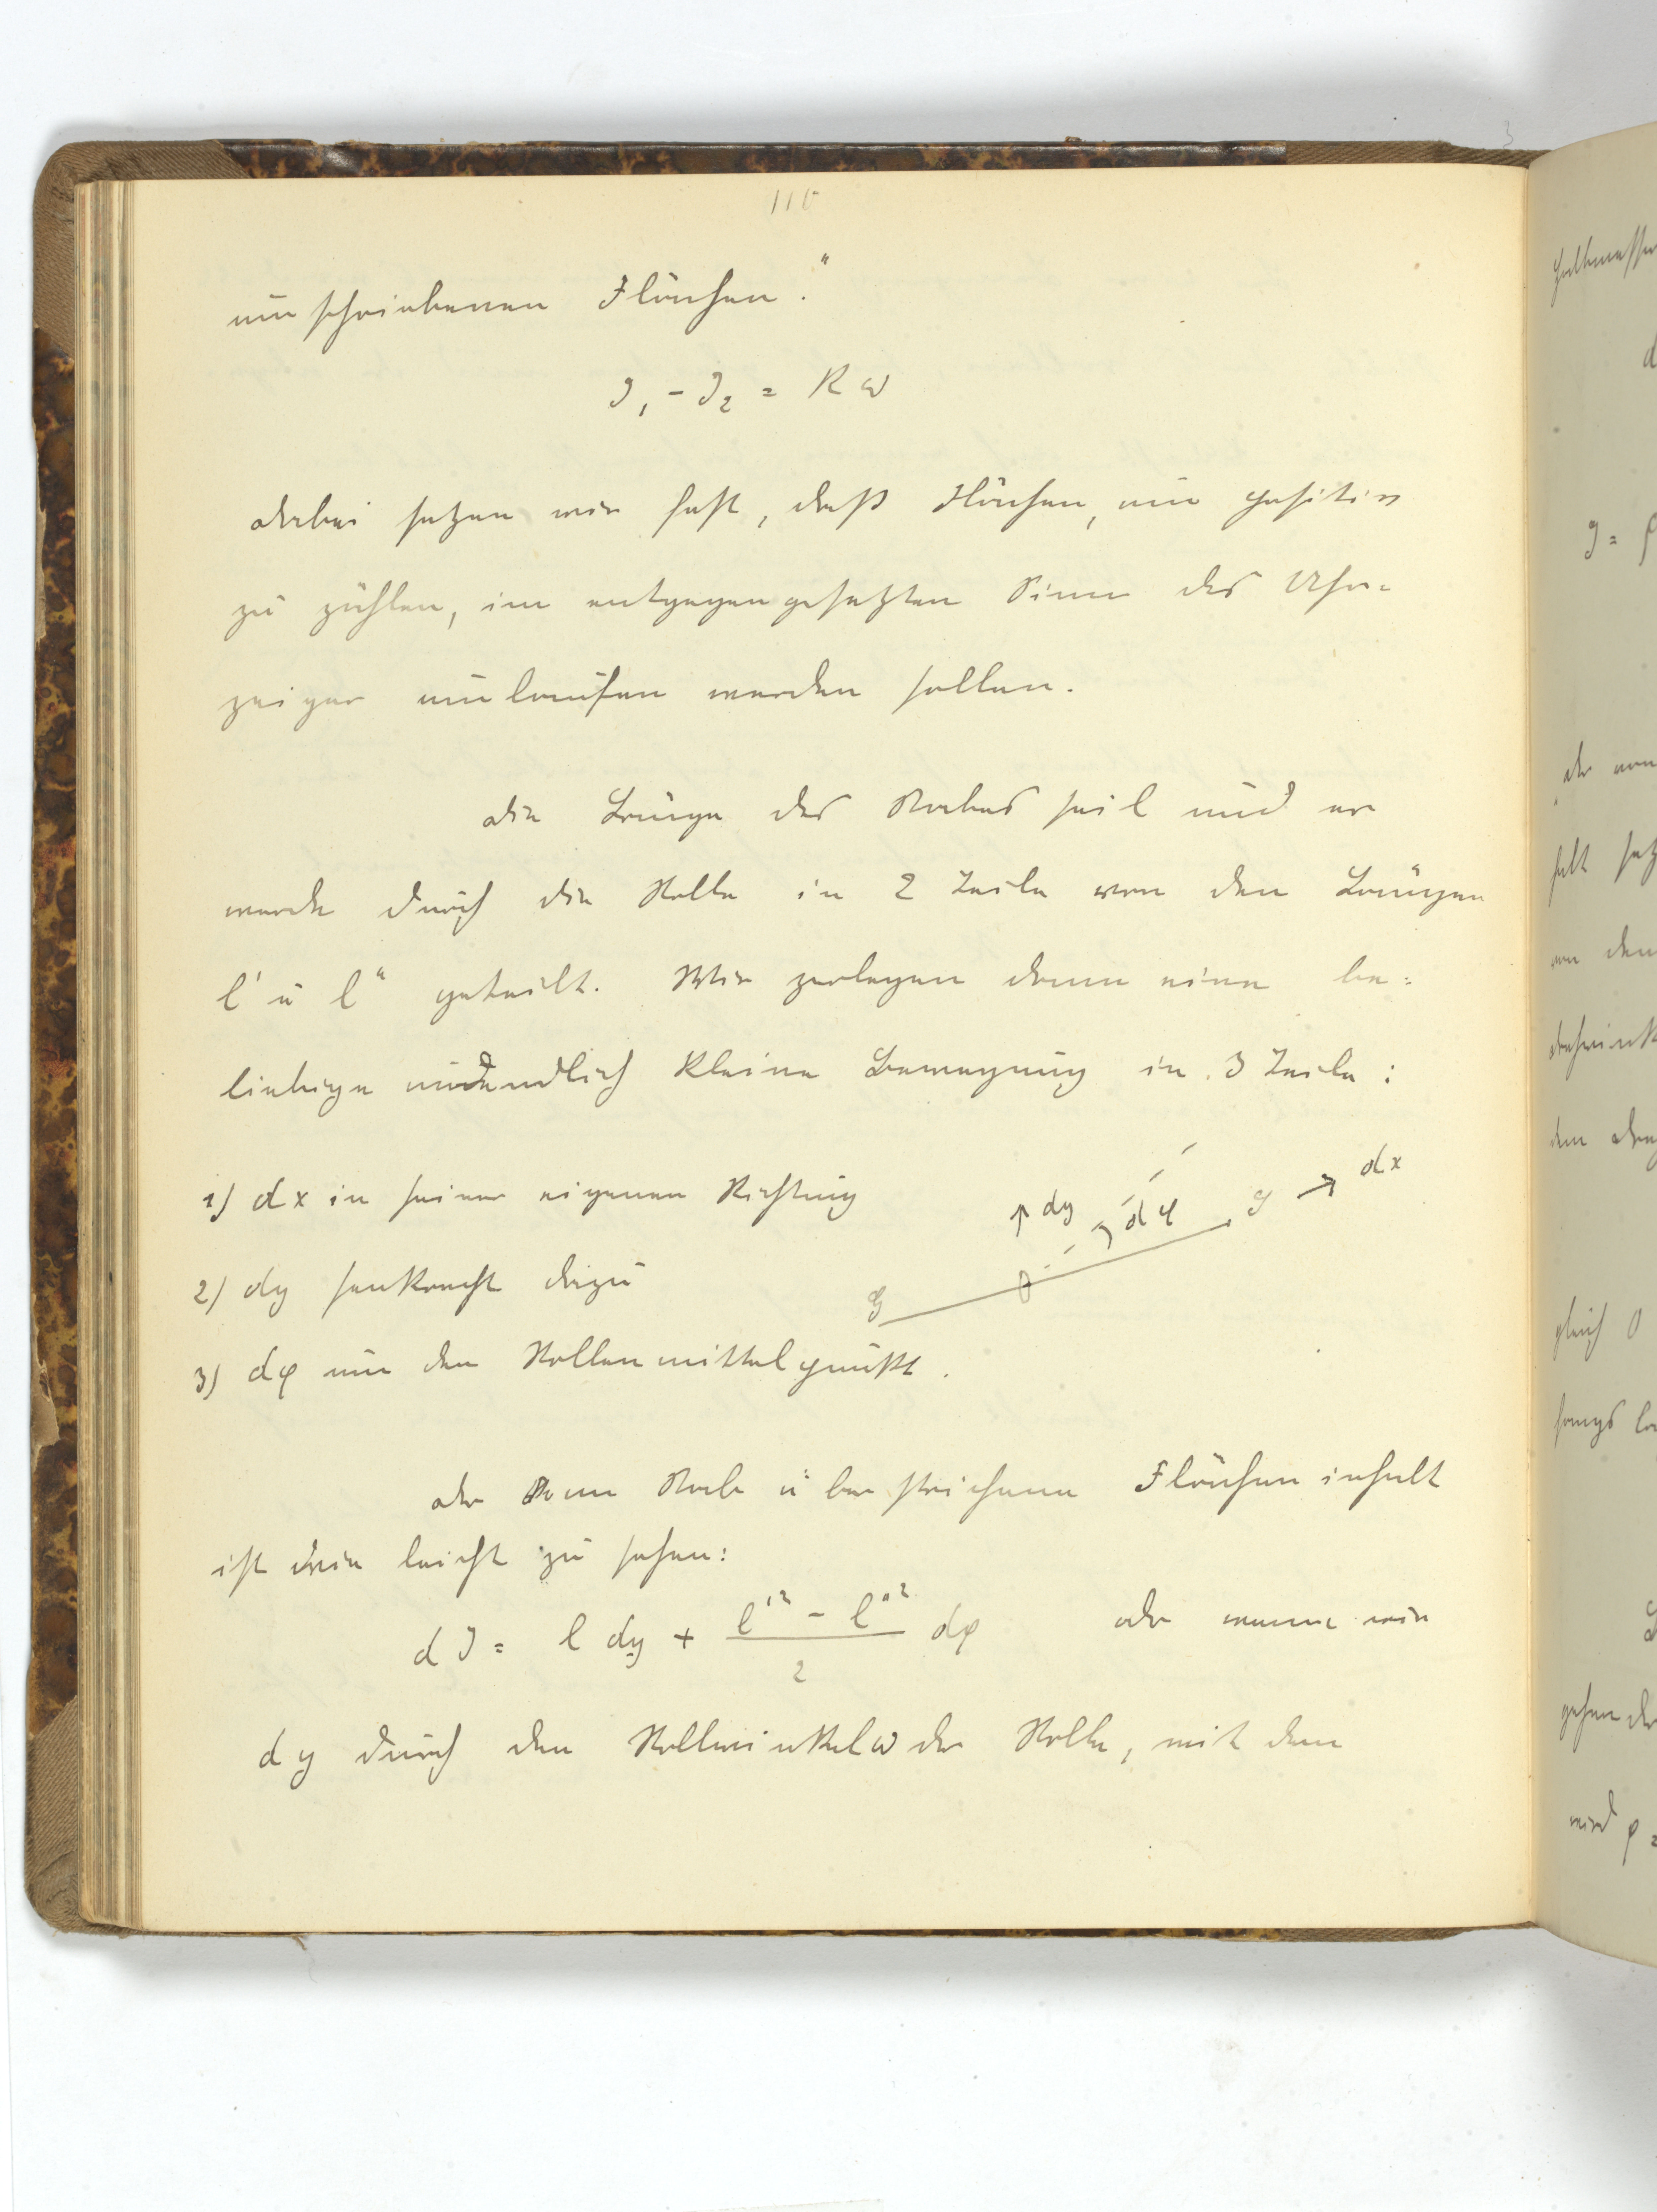 110
umschriebenen Flächen."
J₁ - J₂ = Rω
dabei setzen wir fest, daß Flächen, um positiv
zu zählen, im entgegengesetzten Sinn des Uhr=
zeiger umlaufen werden sollen.
die Länge des Stabes sei l und er
werde durch die Rolle in 2 Teile von den Längen
l' u l" geteilt. Wir zerlegen dann eine be=
liebige unendlich kleine Bewegung in 3 Teile:
1) dx in seiner eigenen Richtung
dy dφ dx
2) dy senkrecht dazu
3) dφ um den Rollenmittelpunkt.
der vom Stab überstrichene Flächeninhalt
ist wie leicht zu sehen:
dJ = l dy + (l'² - l"²)/2 dφ oder wenn wir
dy durch den Rollwinkel ω der Rolle, mit dem